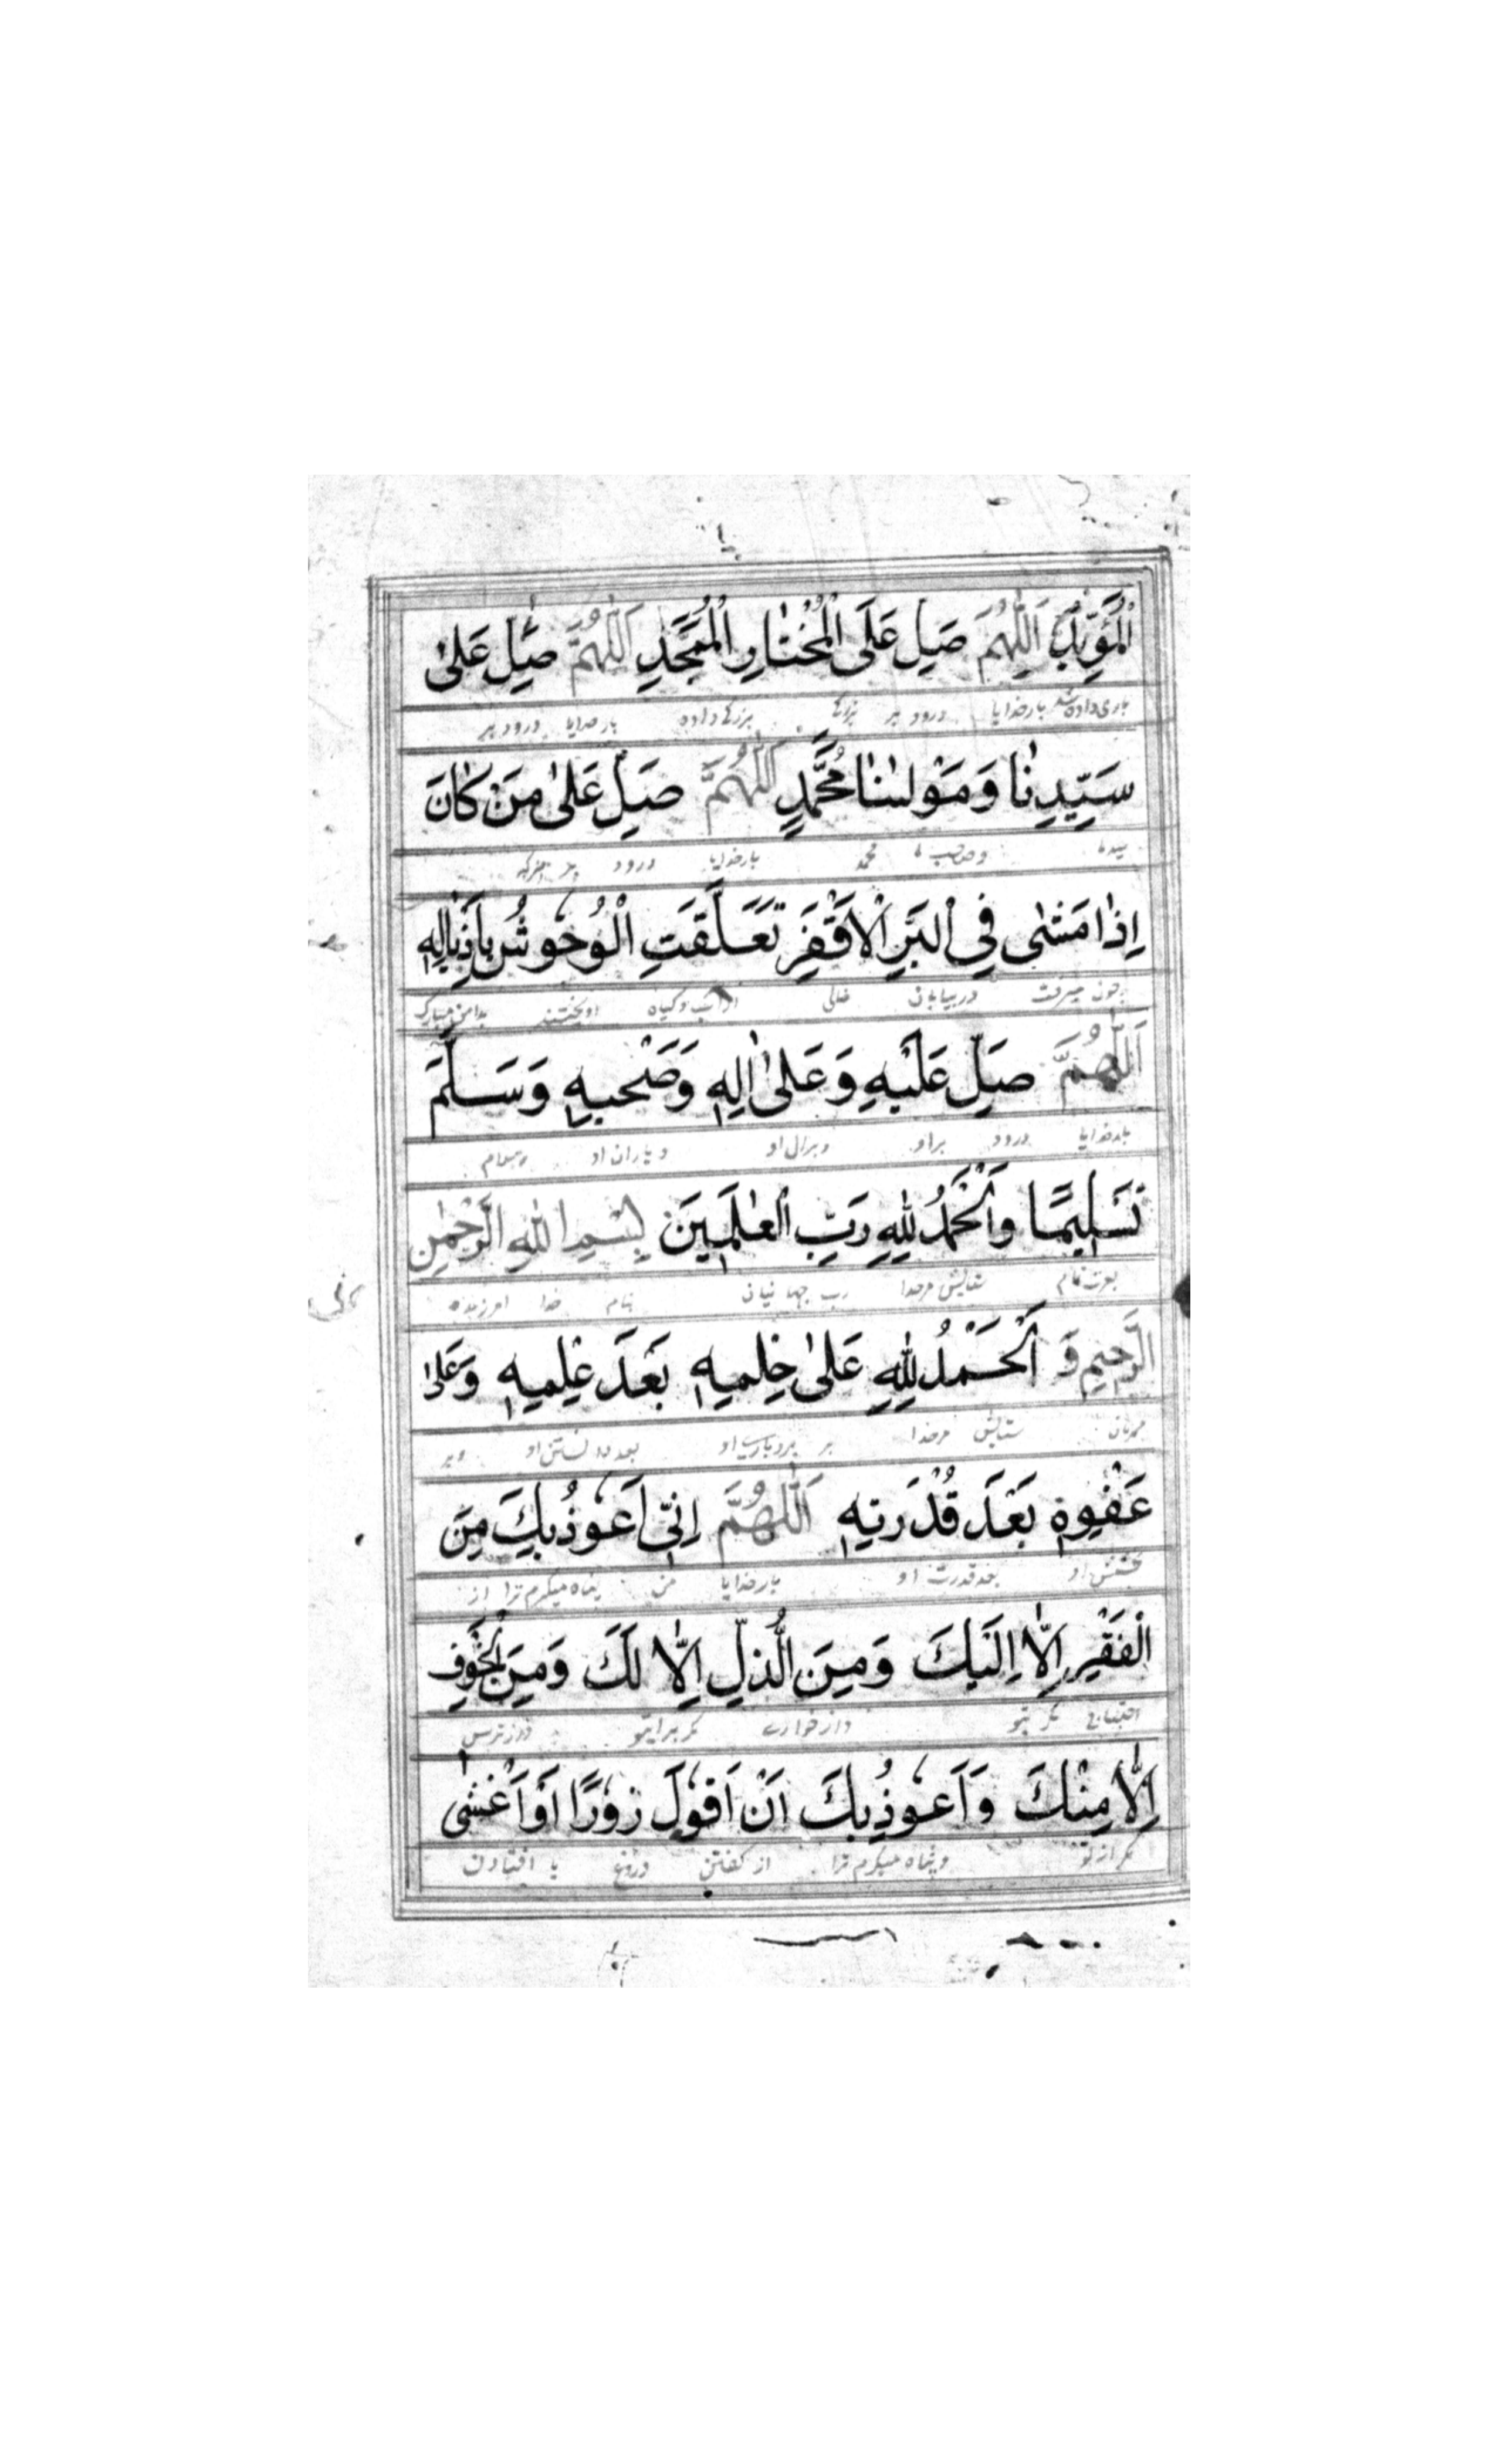 الْمُؤَيَّدِ اَللّٰهُمَّ صَلِّ عَلَى الْمُخْتَارِ الْمُمَجَّدِ اَللّٰهُمَّ صَلِّ عَلٰى
یاری داده شد بارخدایا درود بر بزرگی داده بارخدایا درود بر
سَيِّدِنَا وَمَوْلٰنَا مُحَمَّدٍ اَللّٰهُمَّ صَلِّ عَلٰى مَنْ كَانَ
سید ما وصاحب ما محمد بارخدایا درود بر
اِذَا مَشٰى فِي الْبَرِّ الْاَقْفَرِ تَعَلَّقَتِ الْوُحُوشُ بِاَذْيَالِهٖ
چون میرفت در بیابان خالی اویختند بدامن مبارک
اَللّٰهُمَّ صَلِّ عَلَيْهِ وَعَلٰى اٰلِهٖ وَصَحْبِهٖ وَسَلَّمَ
بارخدایا درود براو وبرال او ویاران او وسلام
تَسْلِيمًا وَالْحَمْدُ لِلّٰهِ رَبِّ الْعٰلَمِينَ بِسْمِ اللهِ الرَّحْمٰنِ
ستایش مرخدا رب جهانیان بنام خدا
الرَّحِيمِ وَ اَلْحَمْدُ لِلّٰهِ عَلٰى حِلْمِهٖ بَعْدَ عِلْمِهٖ وَعَلٰى
مهربان ستایش مرخدا بر بردباری او بعد دانستن او وبر
عَفْوِهٖ بَعْدَ قُدْرَتِهٖ اَللّٰهُمَّ اِنِّي اَعُوذُ بِكَ مِنَ
بخشش او بعد قدرت او بارخدایا من پناه میگیرم ترا از
الْفَقْرِ اِلَّا اِلَيْكَ وَمِنَ الذُّلِّ اِلَّا لَكَ وَمِنَ الْخَوْفِ
احتیاج مگر بتو واز خواری مگر برای تو واز ترس
اِلَّا مِنْكَ وَاَعُوذُ بِكَ اَنْ اَقُولَ زُورًا اَوْ اَغْشٰى
مگر از تو وپناه میگیرم ترا از گفتن دروغ یا افتادن